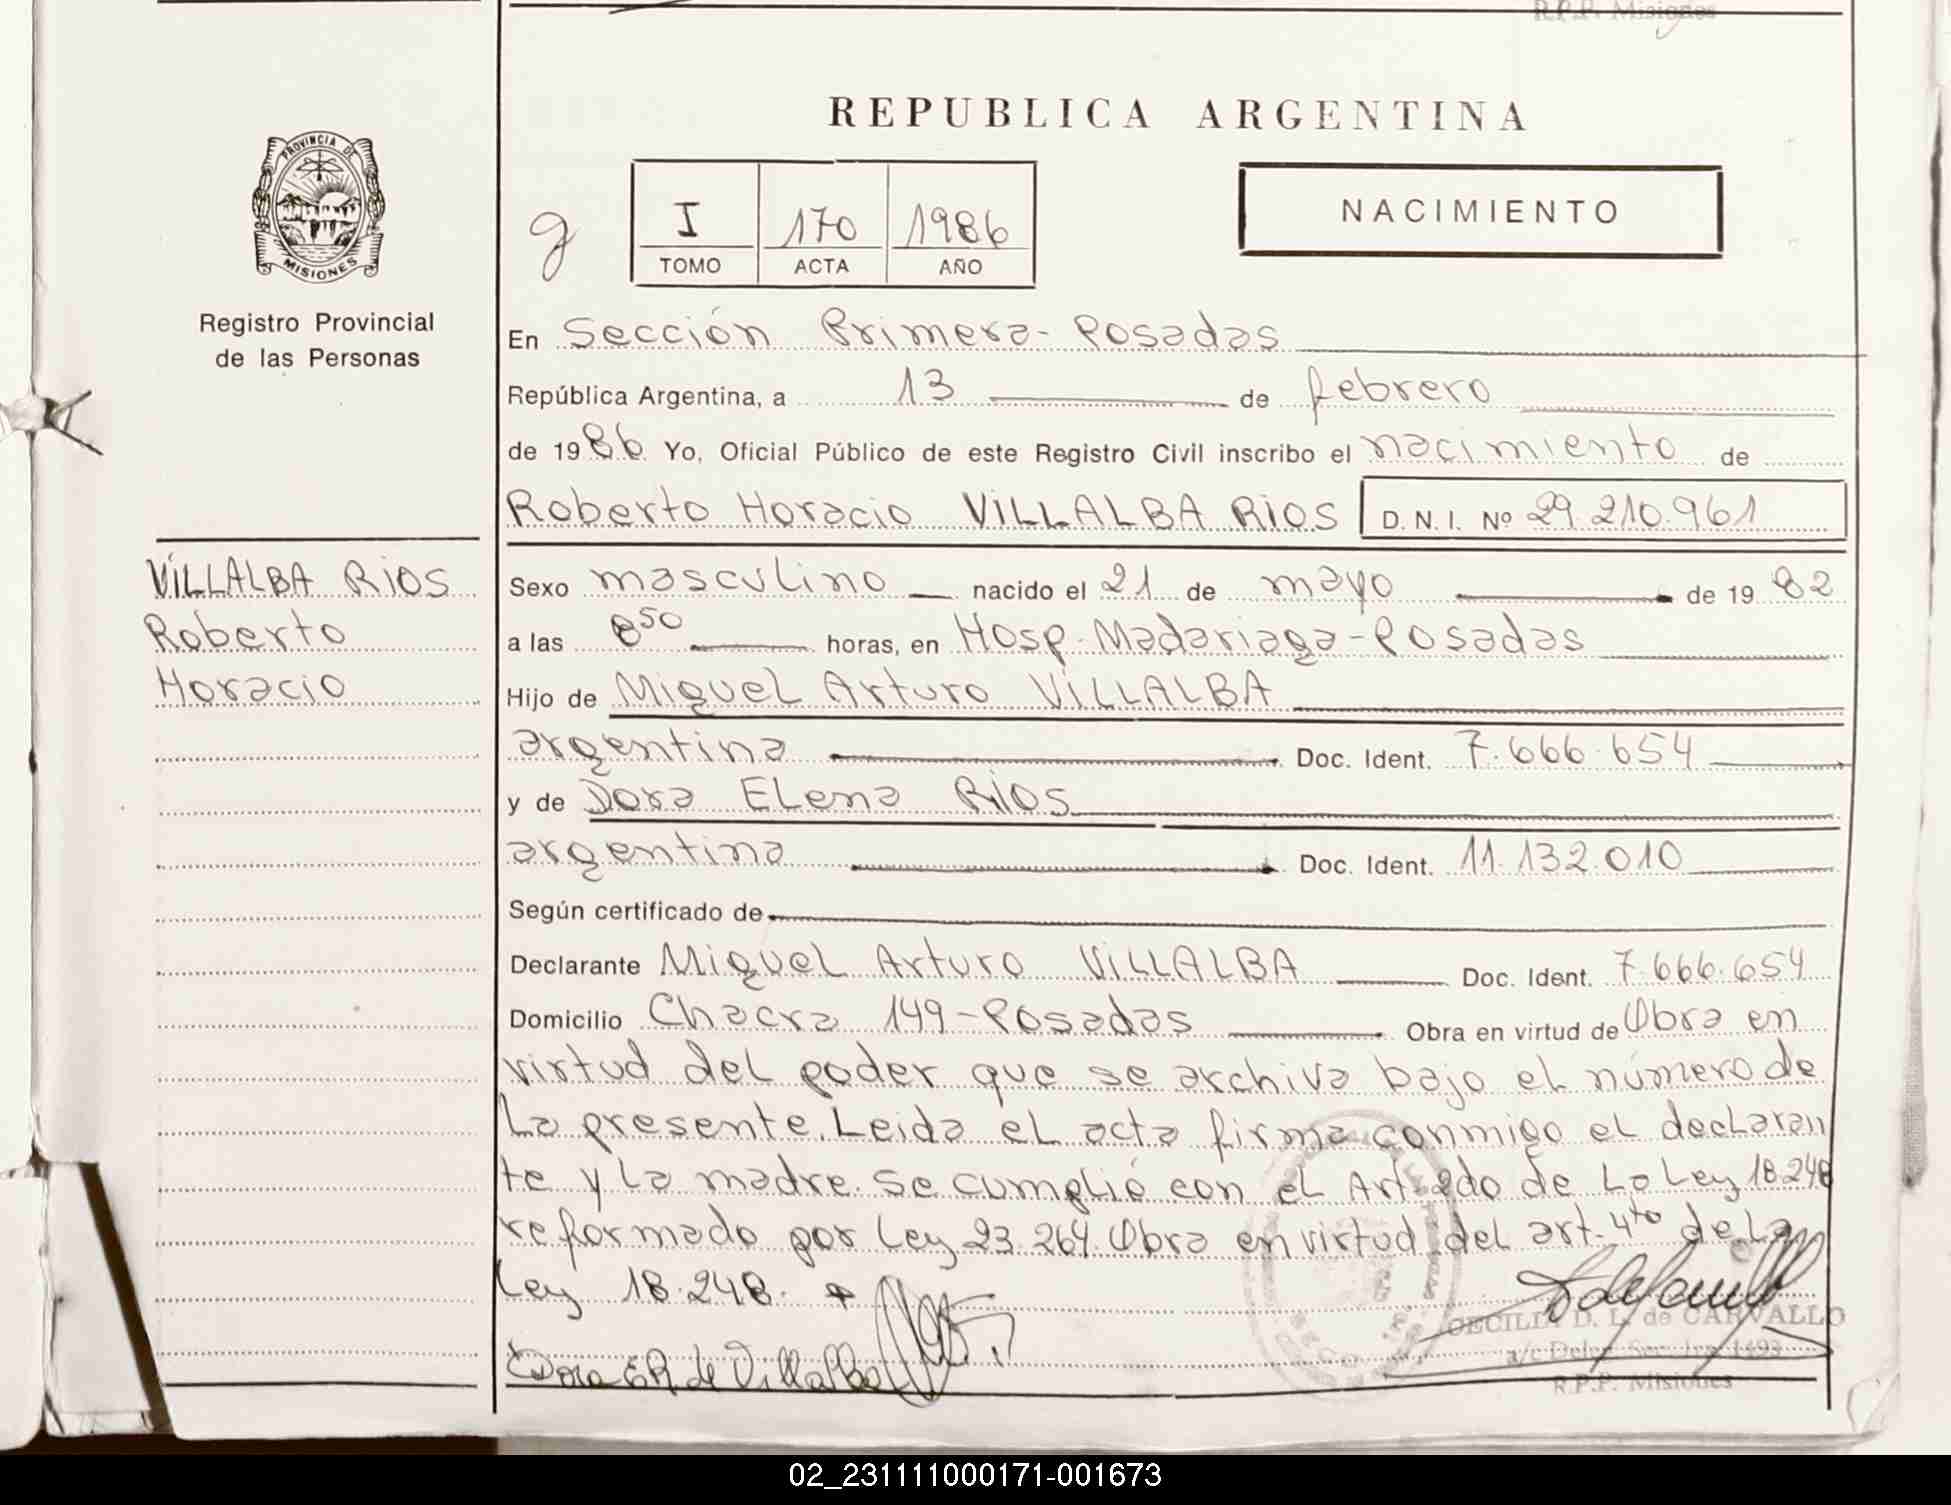 R.P.P. Misiones
REPUBLICA ARGENTINA
PROVINCIA DE
MISIONES
Registro Provincial
de las Personas
g
I 170 1986
TOMO ACTA AÑO
NACIMIENTO
En Sección Primera - Posadas
República Argentina, a 13 de febrero
de 1986 Yo, Oficial Público de este Registro Civil inscribo el nacimiento de
Roberto Horacio VILLALBA RIOS D.N.I. Nº 29.210.961
VILLALBA RIOS
Roberto
Horacio
Sexo masculino nacido el 21 de mayo de 1982
a las 8 50 horas, en Hosp. Madariaga - Posadas
Hijo de Miguel Arturo VILLALBA
argentina Doc. Ident. 7.666.654
y de Dora Elena RIOS
argentina Doc. Ident. 11.132.010
Según certificado de
Declarante Miguel Arturo VILLALBA Doc. Ident. 7.666.654
Domicilio Chacra 149 - Posadas Obra en virtud de Obra en
virtud del poder que se archiva bajo el número de
La presente. Leida el acta firma conmigo el declaran
te y la madre. Se cumplió con el Art. 2do de La Ley 18.248
reformado por Ley 23.264. Obra en virtud del art. 4to de La
Ley 18.248.
Dora E R de Villalba
CECILIA D. L. de CARVALLO
R.P.P. Misiones
02_231111000171-001673